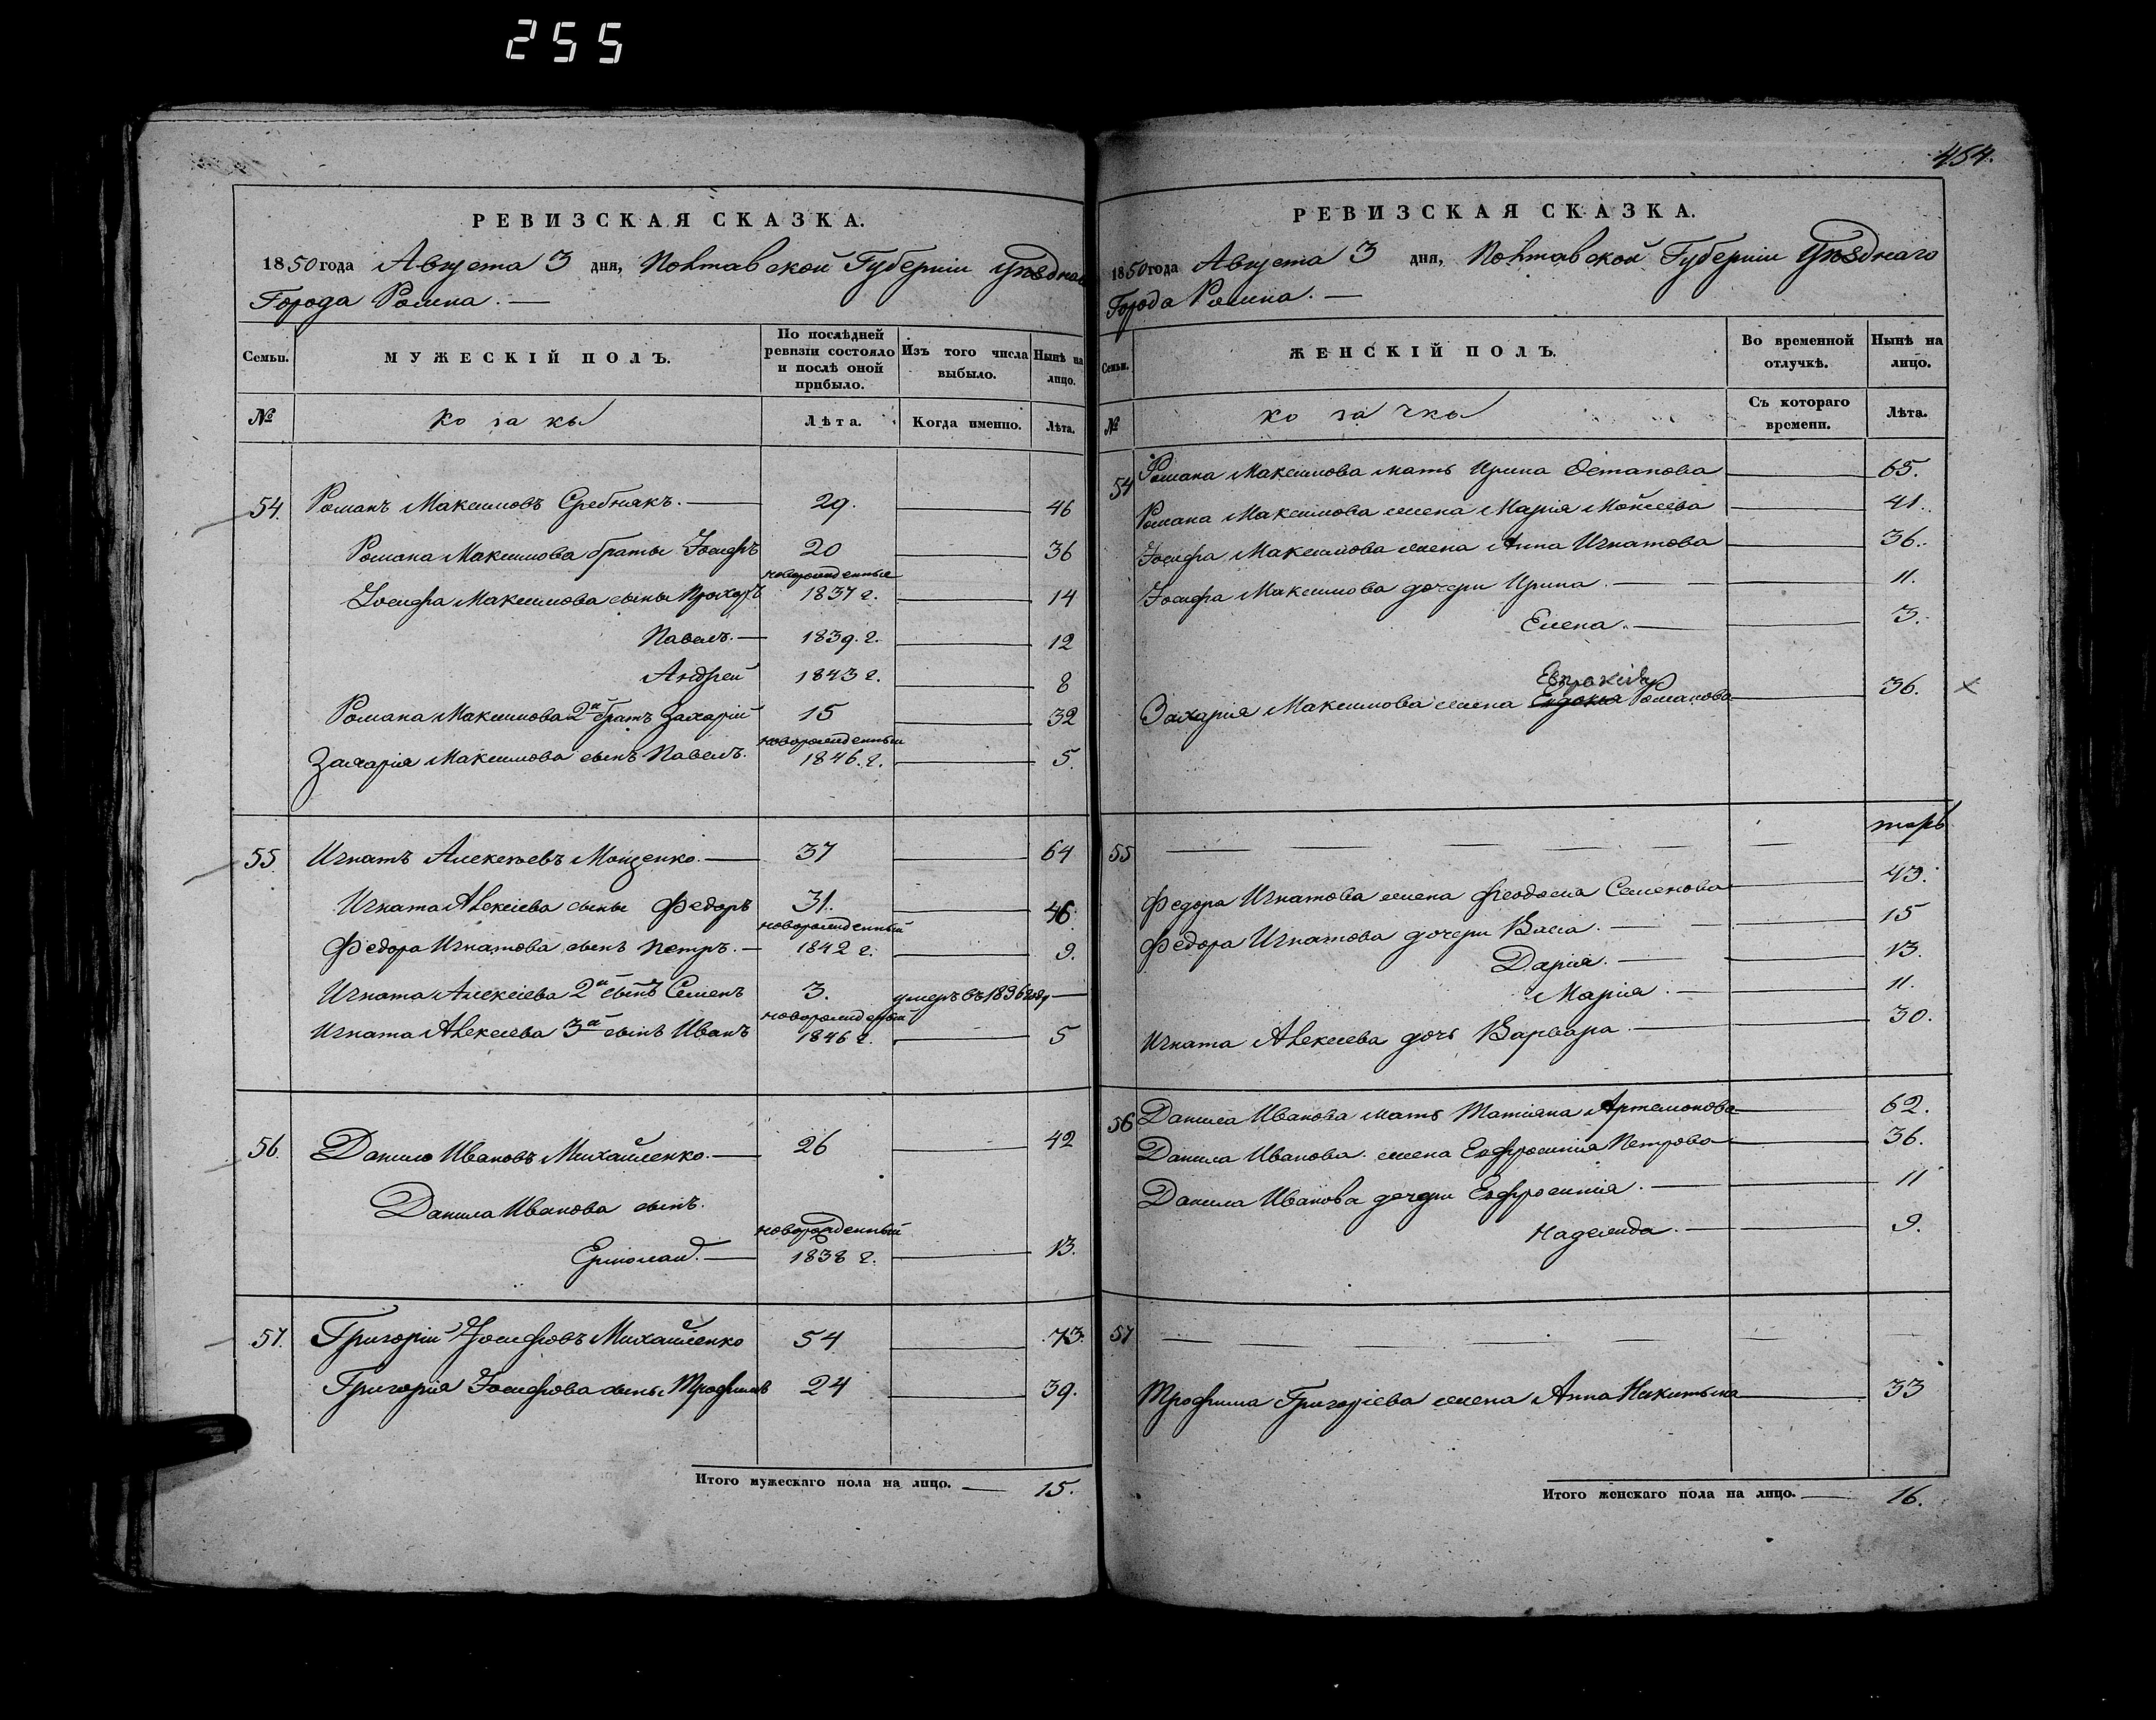 255
454.
РЕВИЗСКАЯ СКАЗКА.
1850 года Августа 3 дня, Полтавской Губерніи Уѣзднаго
Города Ромна. —
Семьи. МУЖЕСКІЙ ПОЛЪ. По послѣдней ревизіи состояло и послѣ оной прибыло. Изъ того числа выбыло. Нынѣ на лицо.
№ козаки Лѣта. Когда именно. Лѣта.
54. Романъ Максимовъ Сребнякъ. — 29. — 46
Романа Максимова братья Іосифъ 20 — 36
новорожденные
Іосифа Максимова сыны Прохоръ 1837 г. — 14
Павелъ. — 1839. г. — 12
Андрей 1843 г. — 8
Романа Максимова 2й братъ Захарій 15 — 32
новорожденный
Захарія Максимова сынъ Павелъ. 1846. г. — 5.
55. Игнатъ Алексѣевъ Мощенко. — 37 — 64
Игната Алексіева сыны Федоръ 31. — 46.
новорожденный
Федора Игнатова сынъ Петръ. — 1842 г. — 9.
Игната Алексіева 2й сынъ Семенъ 3. умеръ въ 1836 году —
новорожденный
Игната Алексіева 3й сынъ Иванъ 1846 г. — 5
56. Данило Ивановъ Михайленко. — 26 — 42
Данила Иванова сынъ.
новорожденный
Ермолай. — 1838 г. — 13.
57. Григорій Іосифовъ Михайленко 54 — 73.
Григорія Іосифова сыны Трофимъ 24 — 39.
Итого мужескаго пола на лицо. — 15.
РЕВИЗСКАЯ СКАЗКА.
1850 года Августа 3 дня, Полтавской Губерніи Уѣзднаго
Города Ромна. —
Семьи. ЖЕНСКІЙ ПОЛЪ. Во временной отлучкѣ. Нынѣ на лицо.
№ козачки Съ котораго времени. Лѣта.
54 Романа Максимова мать Ирина Остапова — 65.
Романа Максимова жена Марія Моисеева — 41.
Іосифа Максимова жена Анна Игнатова — 36.
Іосифа Максимова дочери Ирина. — — 11.
Елена. — — 3.
Захарія Максимова жена Романова — 36. ×
55 — — — — — — —
Федора Игнатова жена Феодосия Семенова — 43.
Федора Игнатова дочери Васса. — — 15
Дарія. — — 13.
Марія. — — 11.
Игната Алексіева дочь Варвара. — — 30.
56 Данила Иванова мать Татіяна Артемонова — 62.
Данила Иванова. жена Евфросинія Петрова — 36.
Данила Иванова дочери Евфросинія. — — 11
Надежда. — — 9.
57 — — — — — — —
Трофима Григоріева жена Анна Никитина — 33
Итого женскаго пола на лицо. — 16.